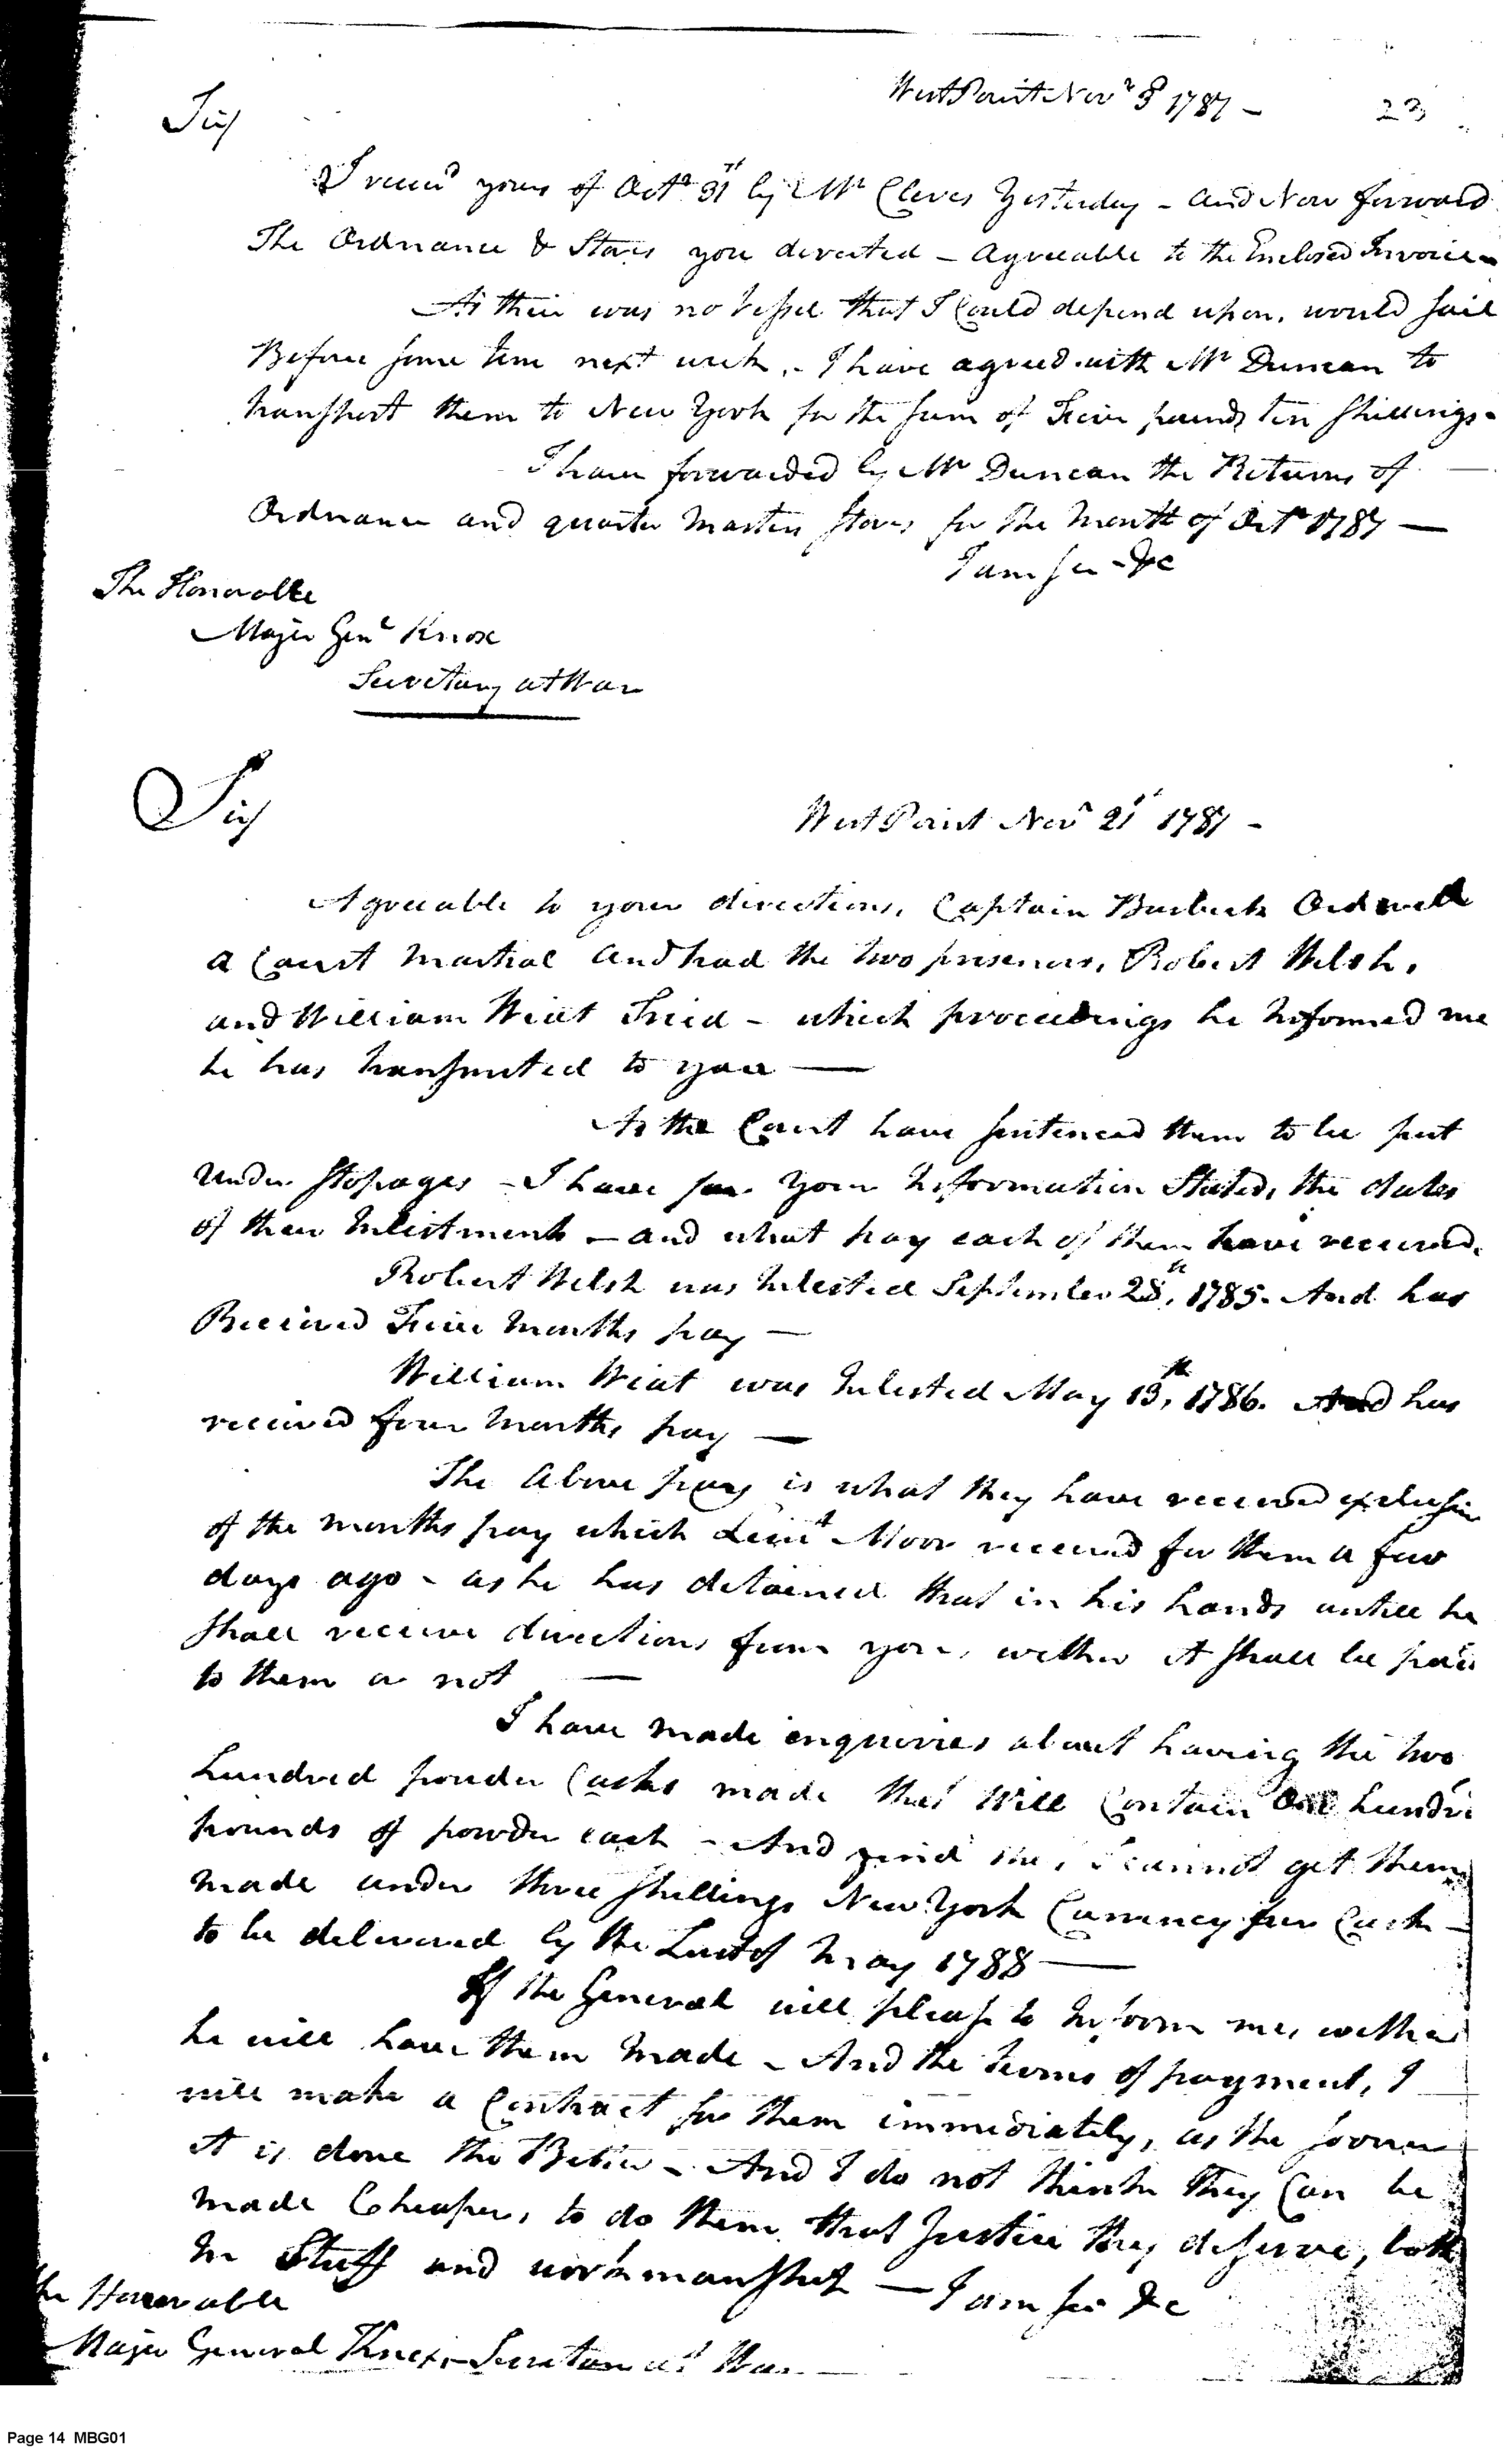 West Point Novr 3d 1787 – 23
Sir
I receivd yours of Octr 31st by Mr Cleves Yesterday – and Now forward
The Ordnance & Stores you dirested – agreeable to the Enclosed Invoice –
As their was no Vessel that I Could depend upon, would sail
Before some time next week, – I have agreed with Mr Duncan to
transport them to New York for the sum of Five pounds ten shillings –
I have forwarded by Mr Duncan the Returns of
Ordnance and quarter Masters stores for the Month of Octr 1787 —
I am Sir &c
The Honorable
Major Genl Knox
Secretary at War
Sir
West Point Novr 21st 1787 –
Agreeable to your directions, Captain Burbeck Ordered
a Court Martial and had the two prisoners, Robert Welsh,
and William Wiat Tried – which proceedings he Informed me
he has transmited to you —
As the Court have sentenced them to be put
under stopages – I have for your Information Stated, the dates
of their Inlistments – and what pay each of them have received.
Robert Welsh was Inlisted September 28th, 1785. And has
Received Five Months pay —
William Wiat was Inlisted May 13th, 1786. And has
received four Months pay —
The Above pay is what they have received exclusive
of the months pay which Leiut Moor received for them a few
days ago – as he has detained that in his hands untill he
shall receive directions from you, wether it shall be paid
to them or not —
I have made enquiries about having the two
hundred powder Casks made that Will Contain One hundrd
pounds of powder each – And find Sir, I cannot get them
made under three shillings New York Currency per Cask –
to be delivered by the Last of May 1788 —
If the General will please to Inform me, wether
he will have them Made – And the terms of payment, I
will make a Contract for them immidiately, as the sooner
it is done the Better – And I do not think They Can be
made Cheaper, to do them that Justice they deserve, both
In Stuff and workmanship — I am Sir &c
he Honorable
Major General Knox, Secretary at War —
Page 14 MBG01